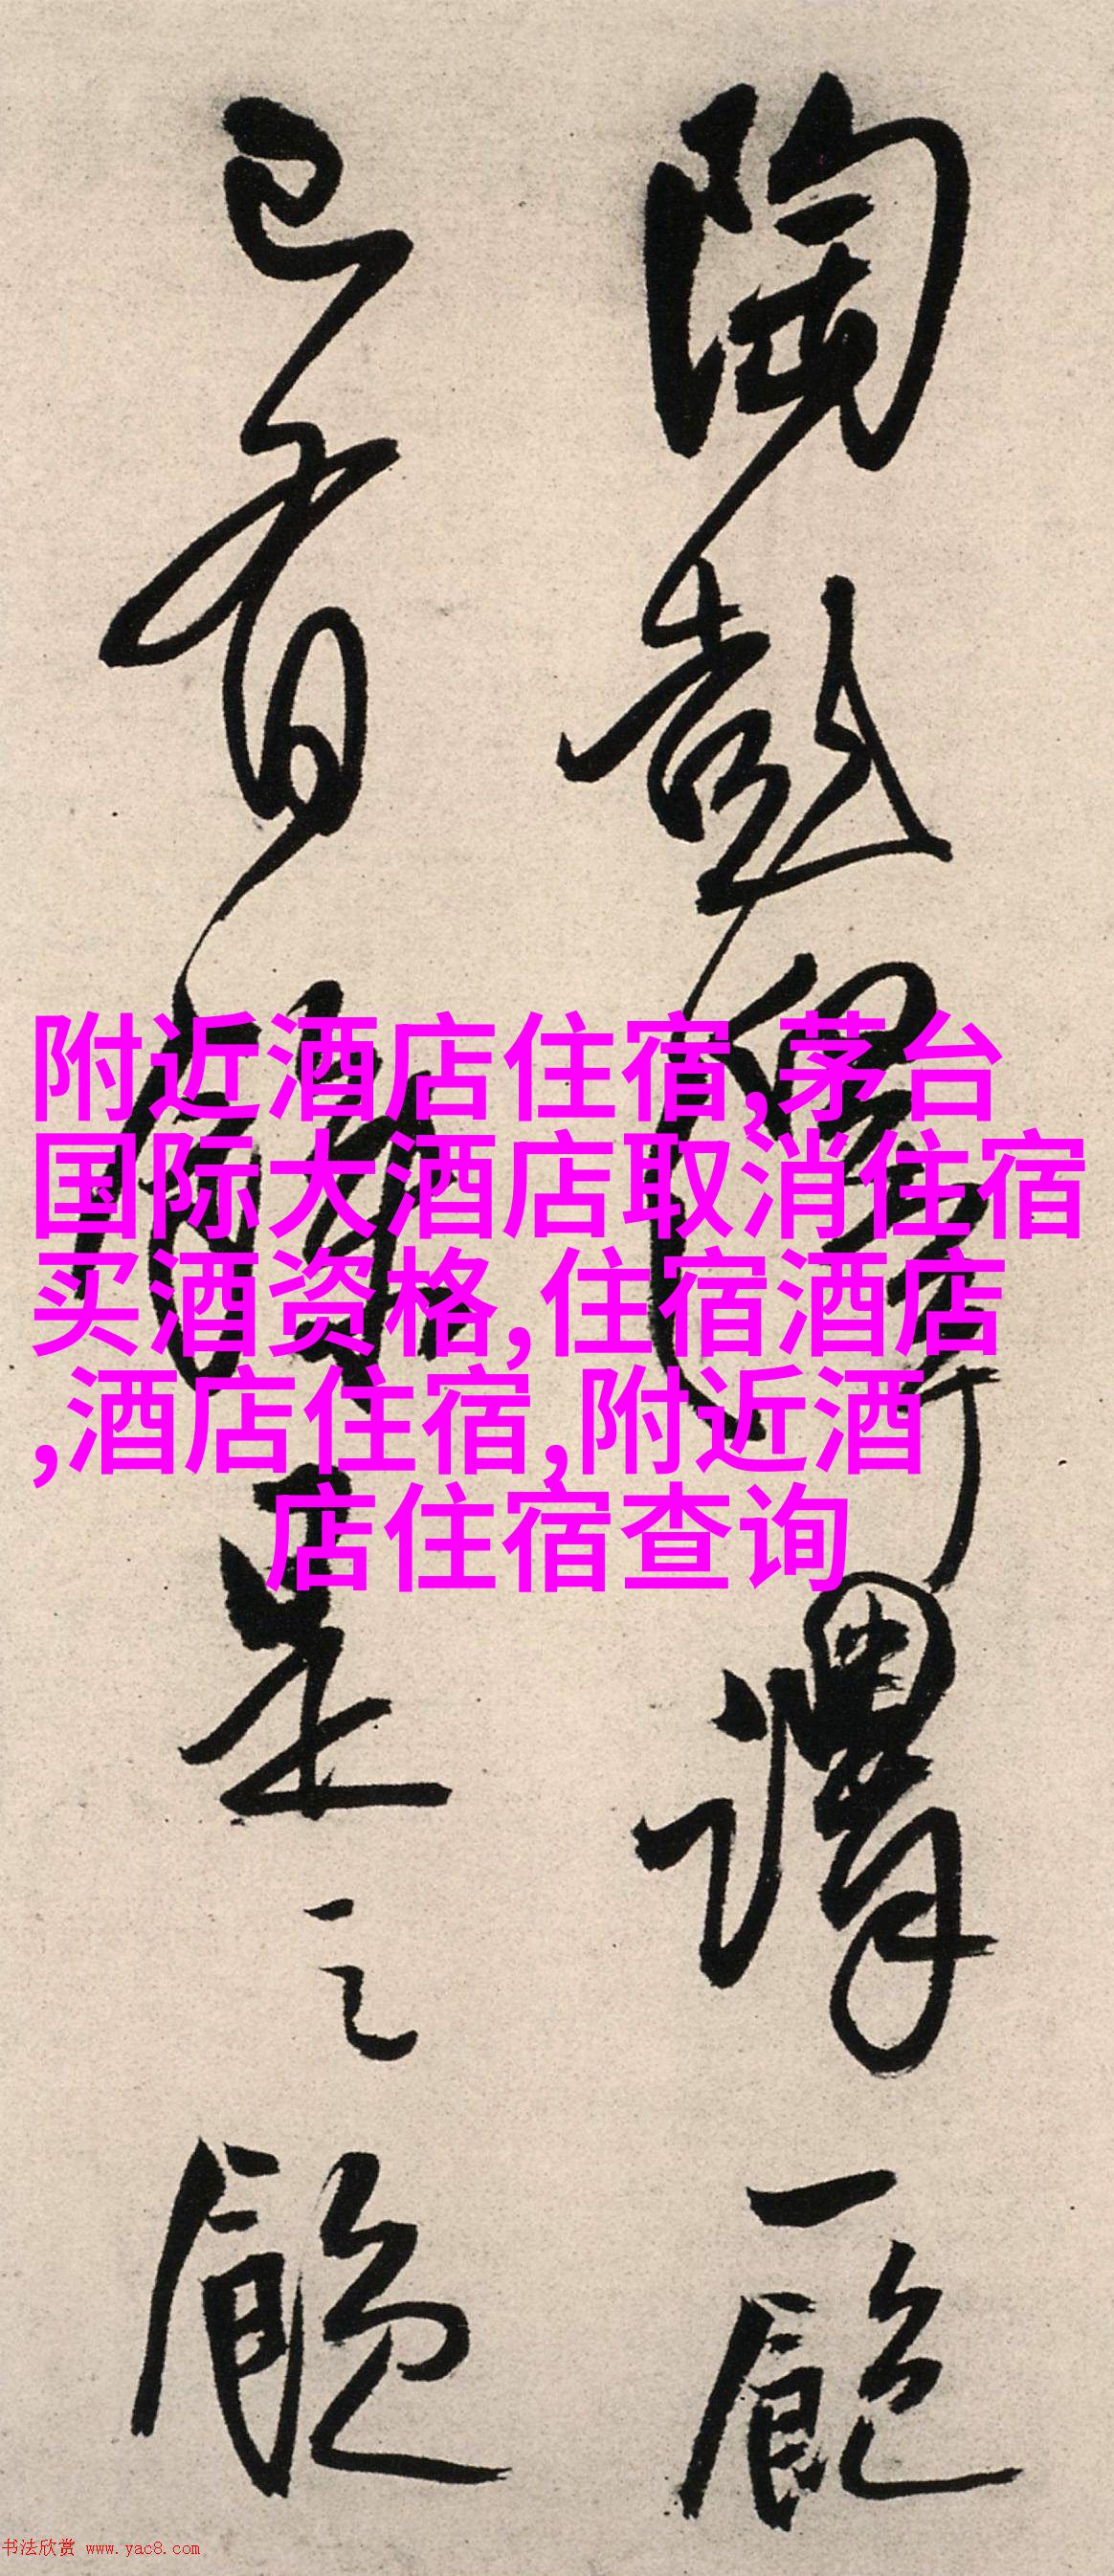 附近酒店住宿,茅台
国际大酒店取消住宿
买酒资格,住宿酒店
,酒店住宿,附近酒
店住宿查询
陶彭澤謂一飽
已有是之
书法欣赏 www.yac8.com